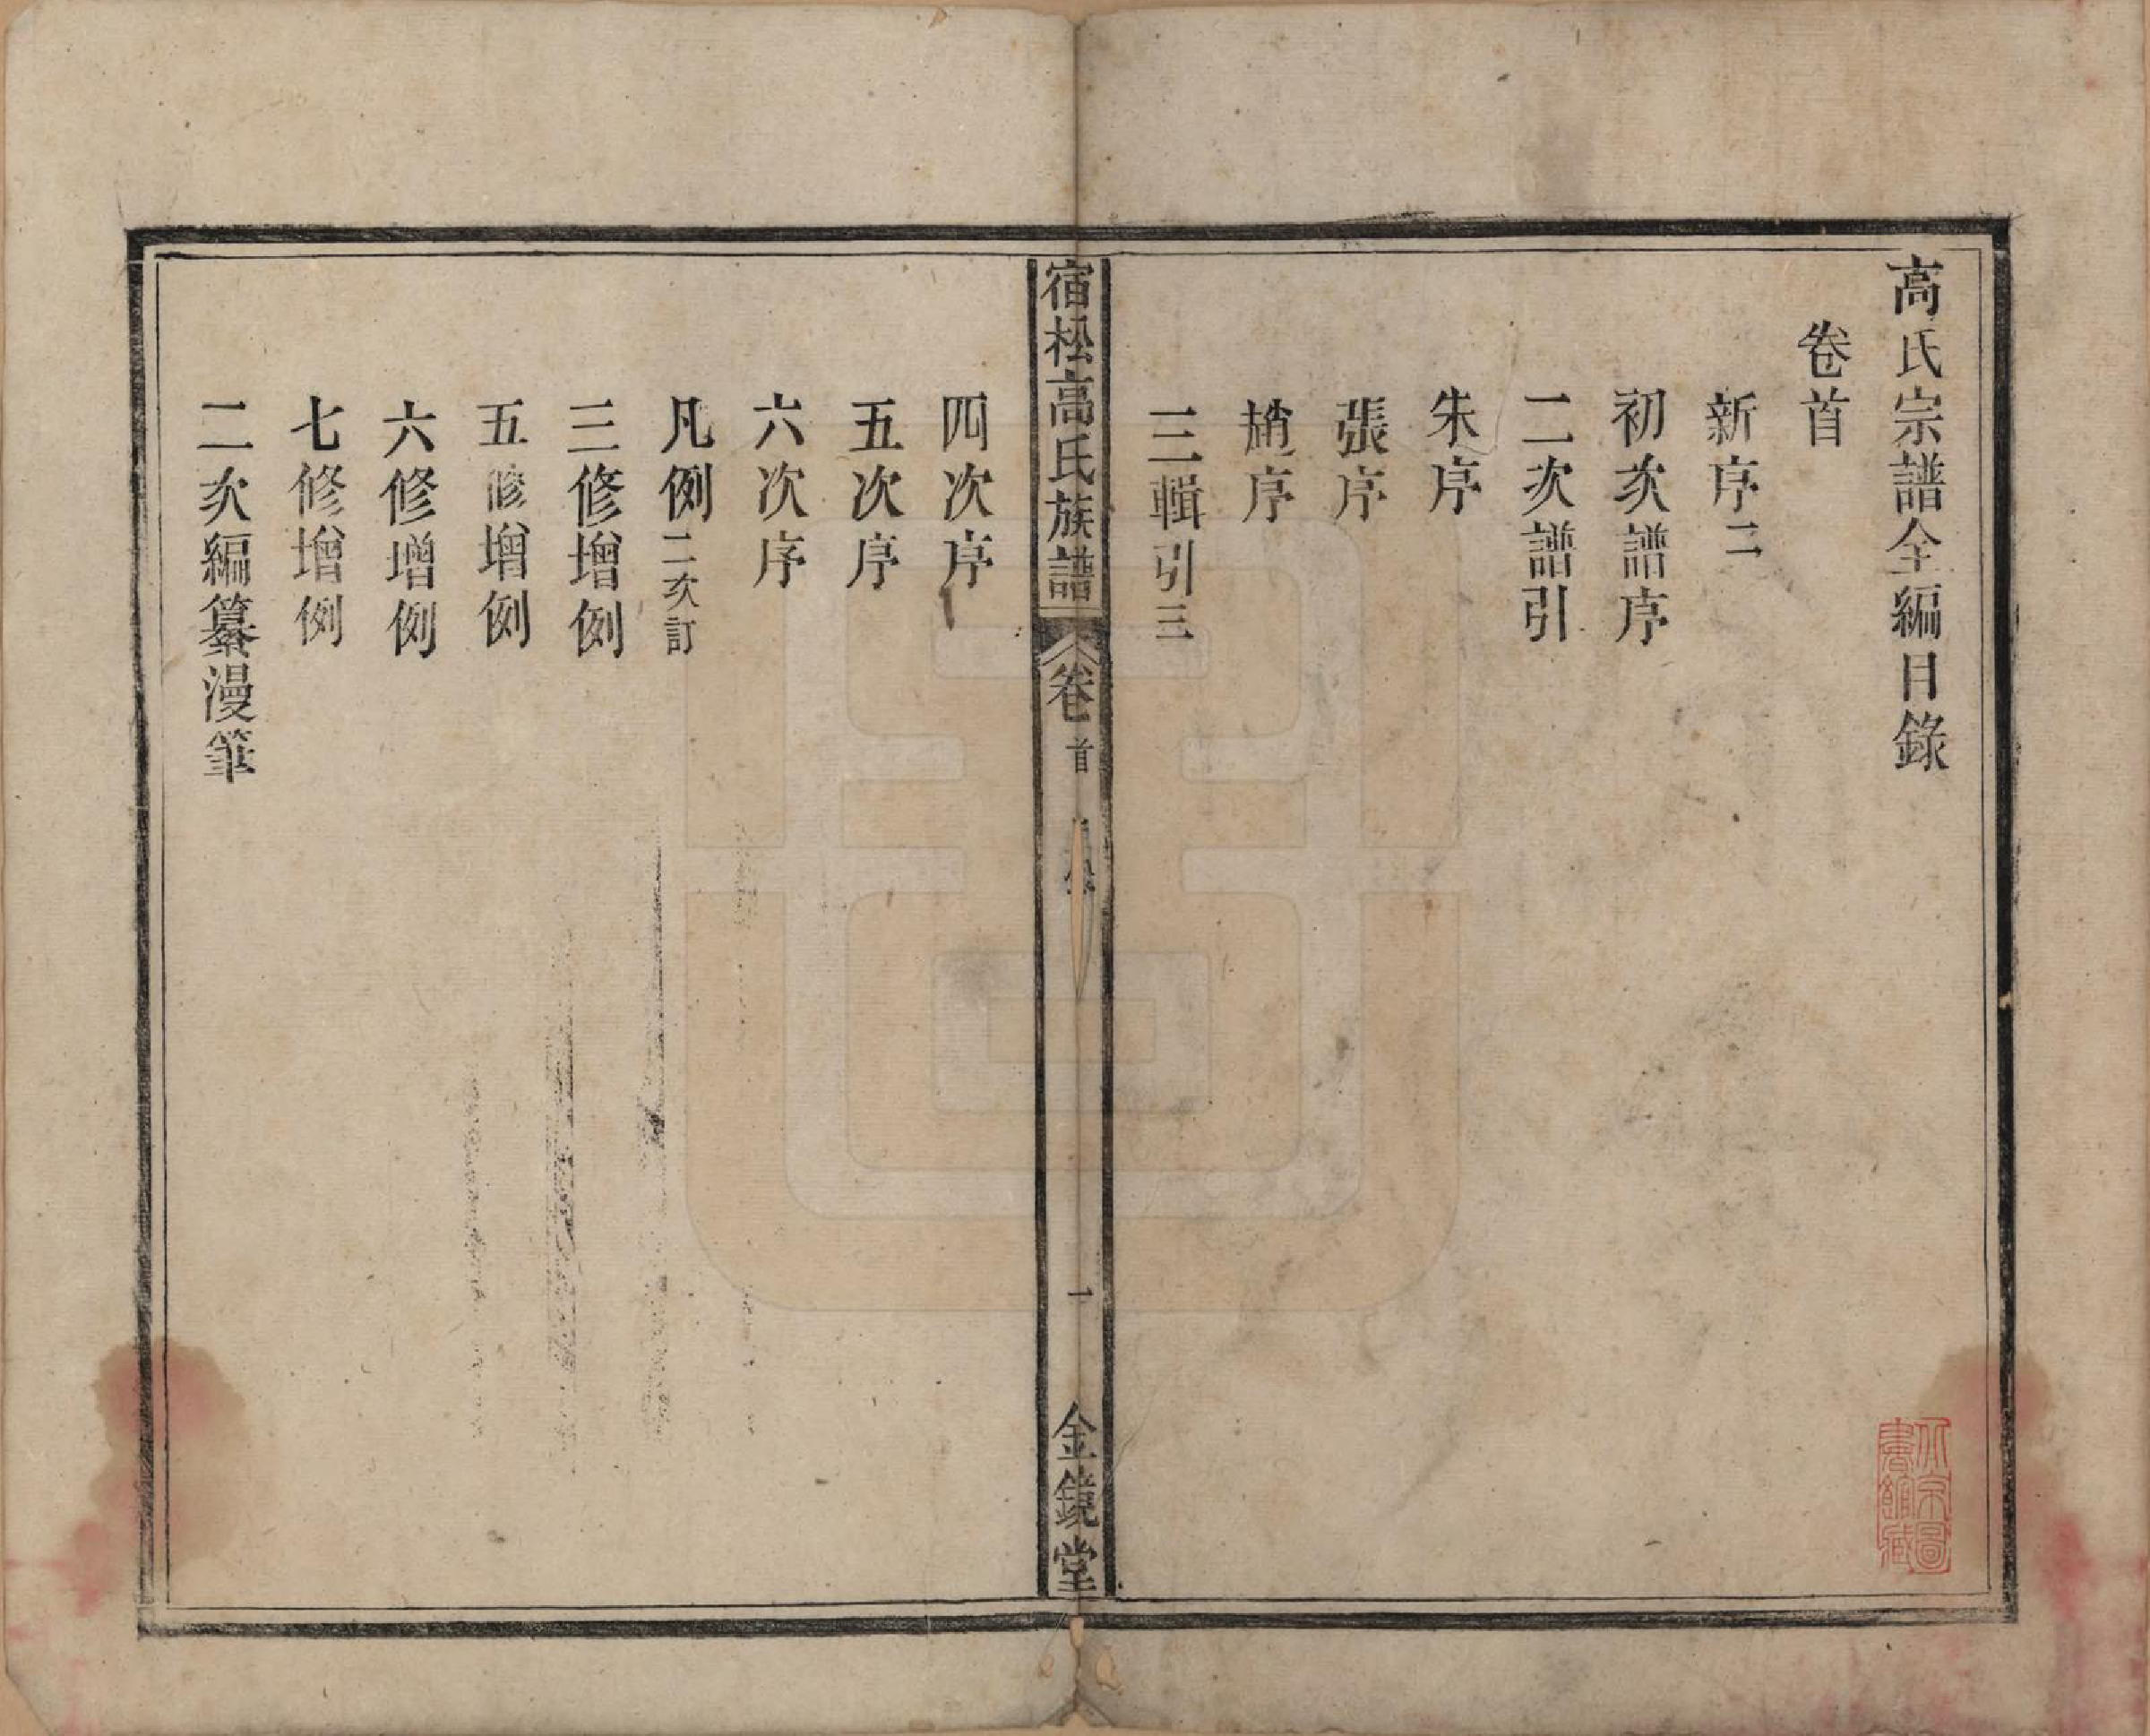 高氏宗譜全編目錄
卷首
新序二
初次譜序
二次譜引
朱序
張序
趙序
三輯引三
宿松高氏族譜
卷首
一
金鏡堂
四次序
五次序
六次序
凡例二次訂
三修增例
五修增例
六修增例
七修增例
二次編纂漫筆